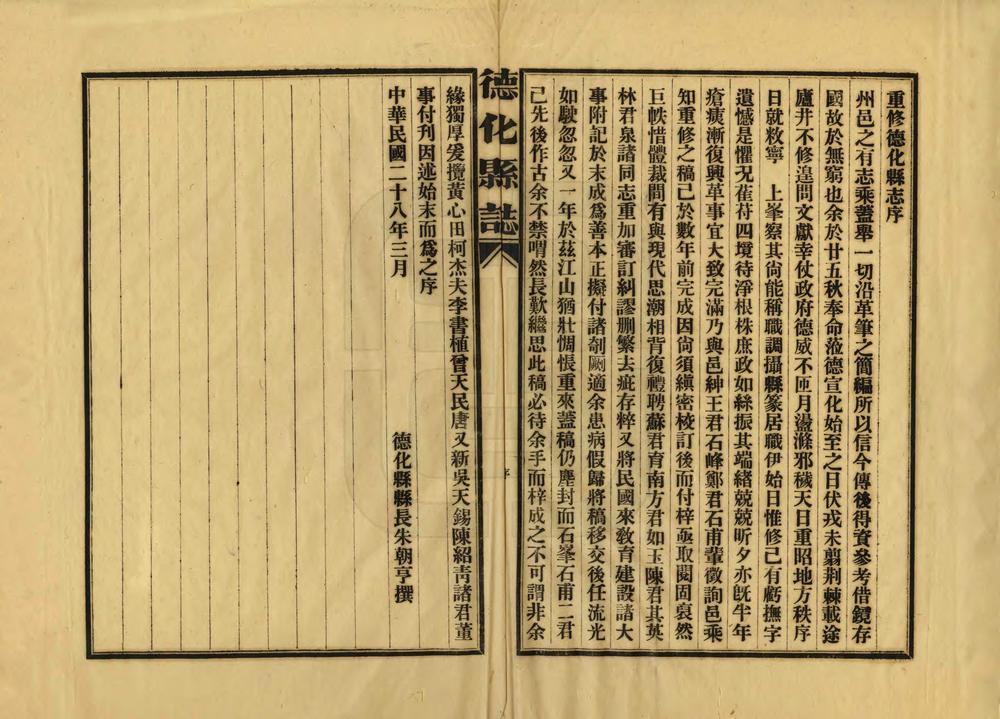 重修德化縣志序
州邑之有志乘蓋舉一切沿革筆之簡編所以信今傳後得資參考借鏡存
國故於無窮也余於廿五秋奉命蒞德宣化始至之日伏戎未翦荆棘載途
廬井不修遑問文獻幸仗政府德威不匝月盪滌邪穢天日重昭地方秩序
日就敉寧　上峯察其尙能稱職調攝縣篆居職伊始日惟修己有虧撫字
遺憾是懼況萑苻四境待淨根株庶政如絲振其端緒兢兢昕夕亦旣半年
瘡痍漸復興革事宜大致完滿乃與邑紳王君石峰鄭君石甫輩徵詢邑乘
知重修之稿已於數年前完成因尙須縝密校訂後而付梓亟取閱固裒然
巨帙惜體裁間有與現代思潮相背復禮聘蘇君育南方君如玉陳君其英
林君泉諸同志重加審訂糾謬删繁去疵存粹又將民國來敎育建設諸大
事附記於末成爲善本正擬付諸剞劂適余患病假歸將稿移交後任流光
如駛忽忽又一年於茲江山猶壯惆悵重來蓋稿仍塵封而石峯石甫二君
已先後作古余不禁喟然長歎繼思此稿必待余手而梓成之不可謂非余
德化縣誌
序
緣獨厚爰攬黃心田柯杰夫李書植曾天民唐又新吳天錫陳紹靑諸君董
事付刋因述始末而爲之序
德化縣縣長朱朝亨撰
中華民國二十八年三月